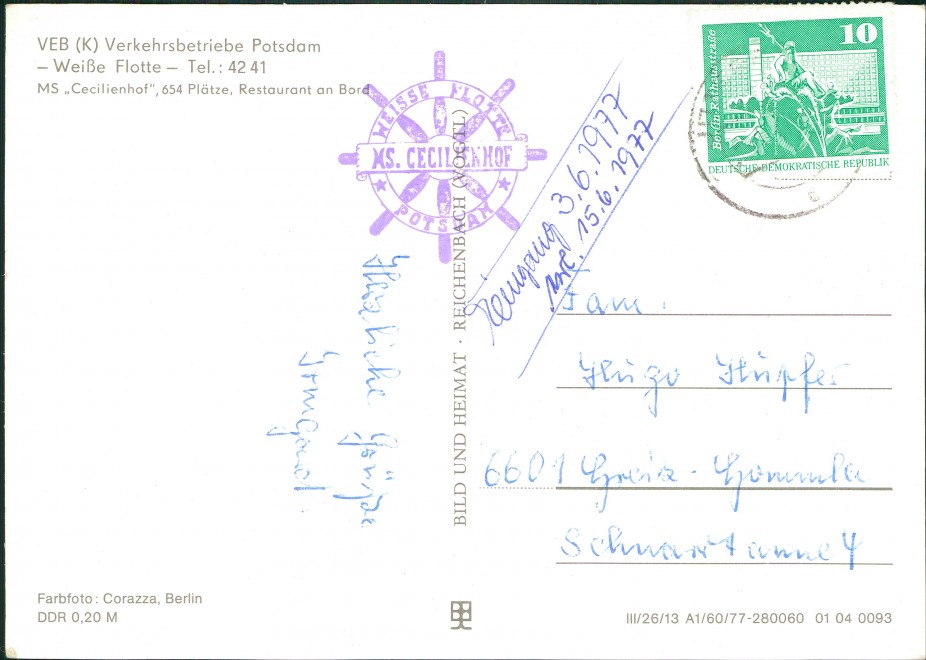 VEB (K) Verkehrsbetriebe Potsdam
– Weiße Flotte – Tel.: 42 41
MS „Cecilienhof“, 654 Plätze, Restaurant an Bord
WEISSE FLOTTE
MS. CECILIENHOF
POTSDAM
10
Berlin-Rathausstraße
DEUTSCHE DEMOKRATISCHE REPUBLIK
Eingang 3.6.1977
15.6.1977
Herzliche Grüße
Irmgard
BILD UND HEIMAT · REICHENBACH (VOGTL)
Fam.
Hugo Hupfer
6601 Greiz-Gommla
Schnarrtanne 4
Farbfoto: Corazza, Berlin
DDR 0,20 M
III/26/13 A1/60/77-280060 01 04 0093